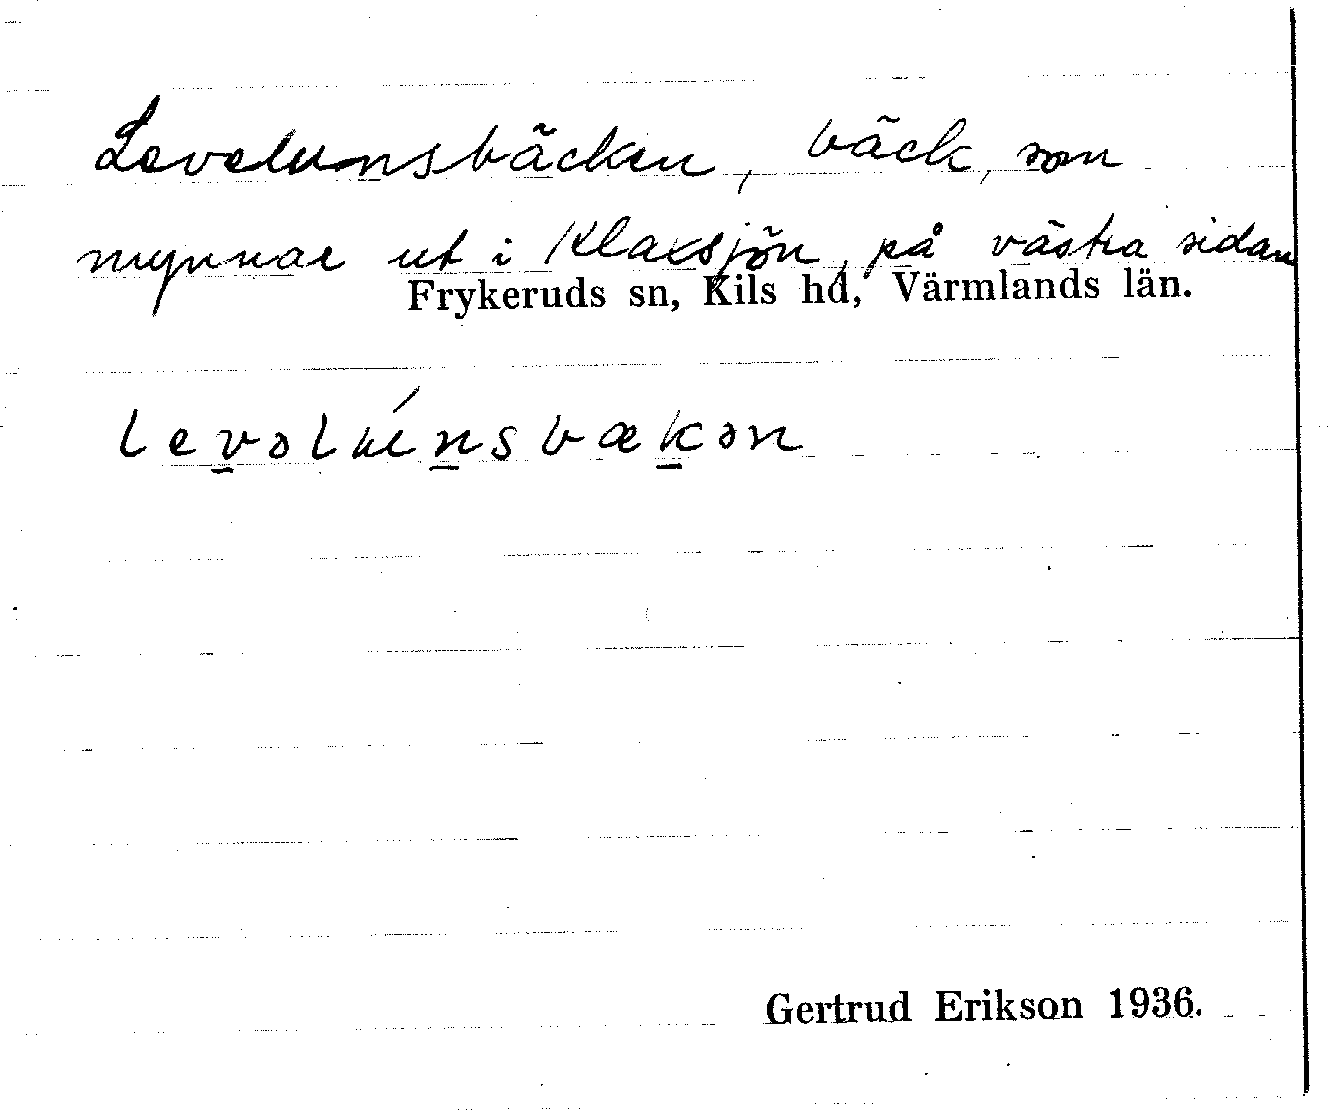 Levelunsbäcken, bäck, som
mynnar ut i Klarsjön, på västra sidan
Frykeruds sn, Kils hd, Värmlands län.
levəlúnsbækən
Gertrud Erikson 1936.